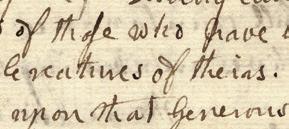 of those who have
Creatures of theirs.
upon that Generous